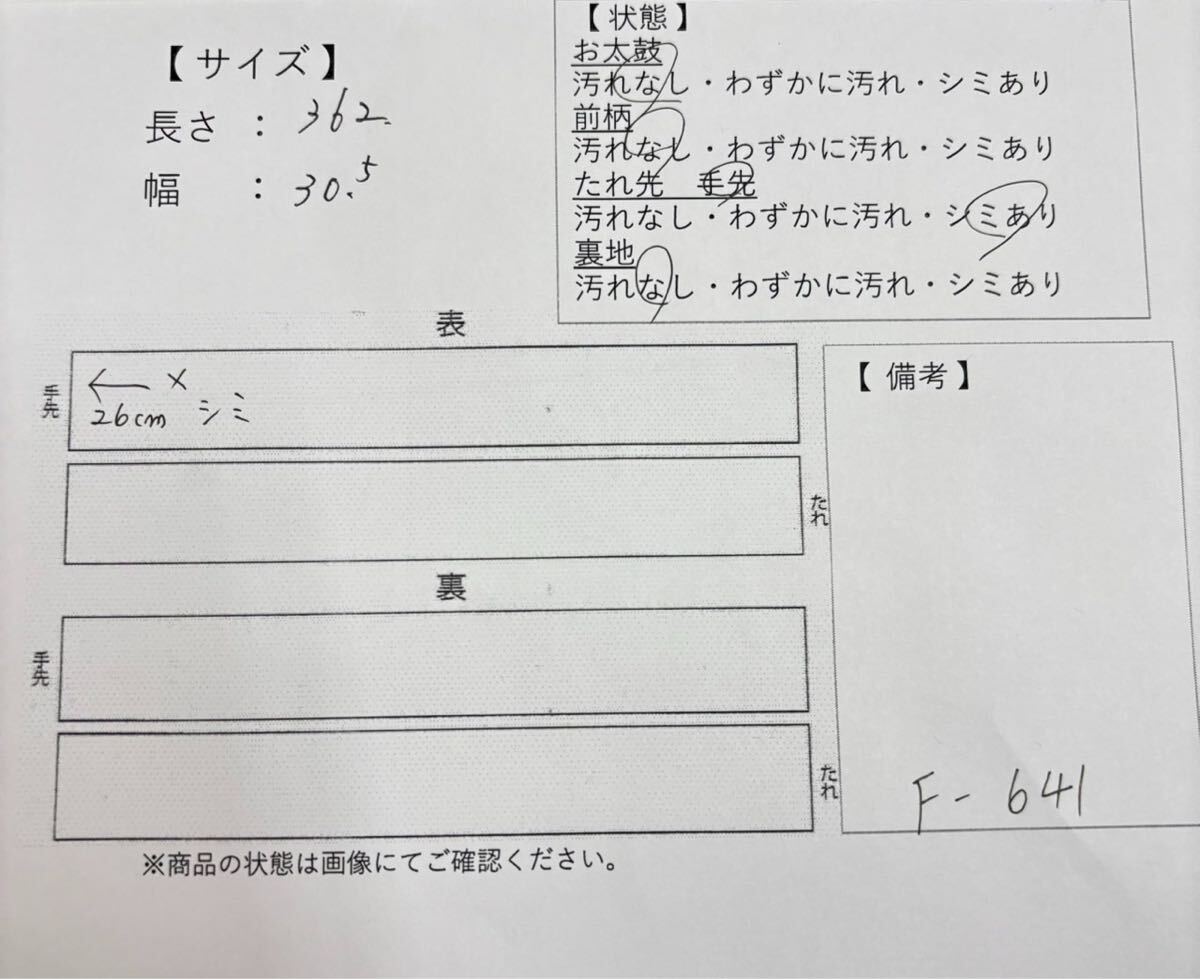 【 サイズ 】
長さ ： 362.
幅 ： 30.5
【 状態 】
お太鼓
汚れなし・わずかに汚れ・シミあり
前柄
汚れなし・わずかに汚れ・シミあり
たれ先 手先
汚れなし・わずかに汚れ・シミあり
裏地
汚れなし・わずかに汚れ・シミあり
表
手先
← ×
26cm シミ
たれ
裏
手先
たれ
【 備考 】
F - 641
※商品の状態は画像にてご確認ください。